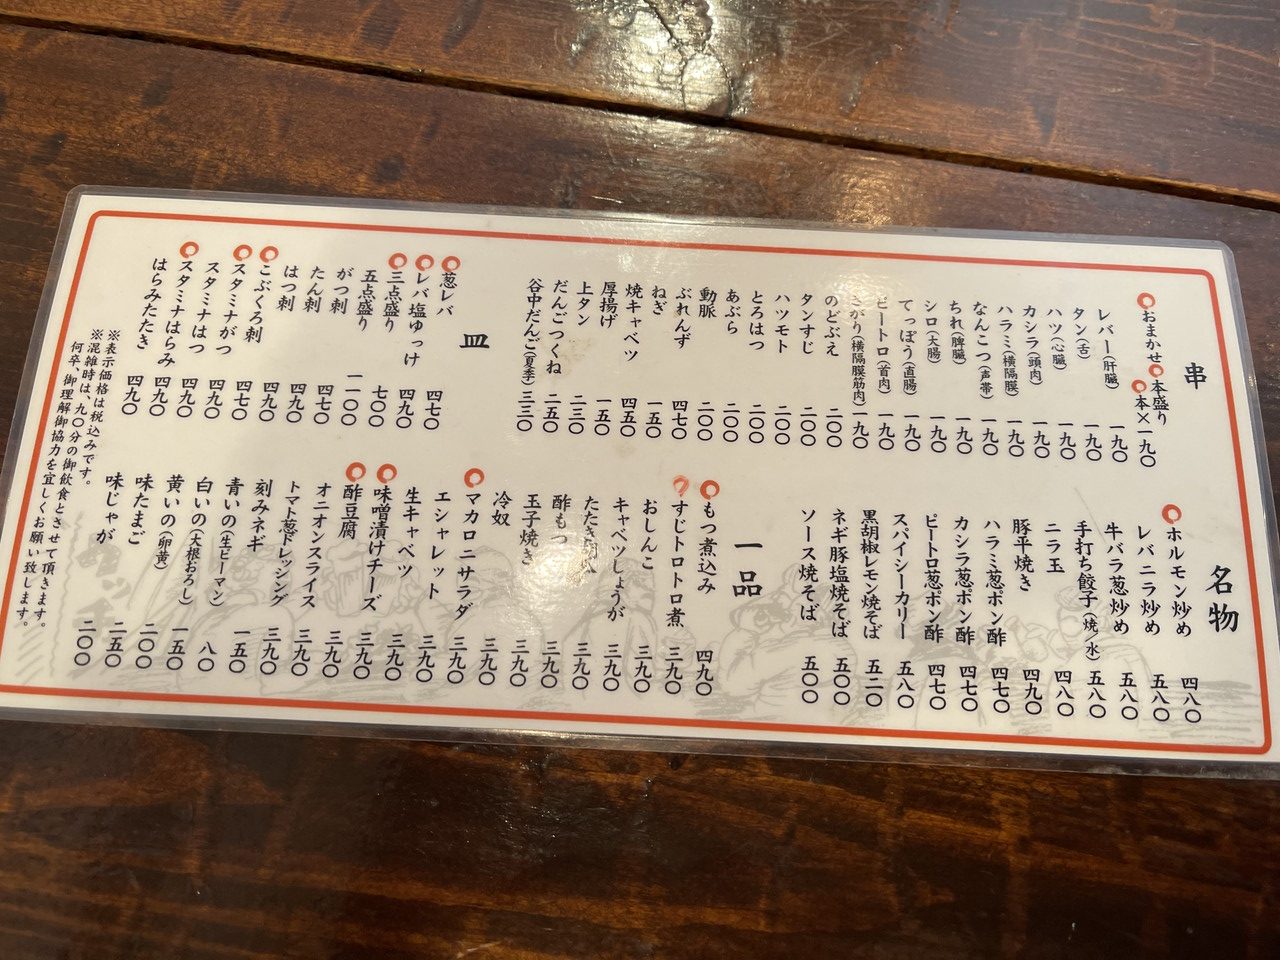 串
おまかせ○本盛り
○本×一九〇
レバー(肝臓) 一九〇
タン(舌) 一九〇
ハツ(心臓) 一九〇
カシラ(頭肉) 一九〇
ハラミ(横隔膜) 一九〇
なんこつ(声帯) 一九〇
ちれ(脾臓) 一九〇
シロ(大腸) 一九〇
てっぽう(直腸) 一九〇
ピートロ(首肉) 一九〇
さがり(横隔膜筋肉) 一九〇
のどぶえ 二〇〇
タンすじ 二〇〇
ハツモト 二〇〇
とろはつ 二〇〇
あぶら 二〇〇
動脈 二〇〇
ぶれんず 四七〇
ねぎ 一五〇
焼キャベツ 四五〇
厚揚げ 一五〇
上タン 二三〇
だんごつくね 二五〇
谷中だんご(夏季) 三三〇
皿
葱レバ 四七〇
レバ塩ゆっけ 四九〇
三点盛り 七〇〇
五点盛り 一一〇〇
がつ刺 四七〇
たん刺 四九〇
はつ刺 四九〇
こぶくろ刺 四七〇
スタミナがつ 四九〇
スタミナはつ 四九〇
スタミナはらみ 四九〇
はらみたたき 四九〇
名物
ホルモン炒め 四八〇
レバニラ炒め 五八〇
牛バラ葱炒め 五八〇
手打ち餃子(焼/水) 五八〇
ニラ玉 四八〇
豚平焼き 四九〇
ハラミ葱ポン酢 四七〇
カシラ葱ポン酢 四七〇
ピートロ葱ポン酢 四七〇
スパイシーカリー 五八〇
黒胡椒レモン焼そば 五二〇
ネギ豚塩焼そば 五〇〇
ソース焼そば 五〇〇
一品
もつ煮込み 四九〇
すじトロトロ煮 三九〇
おしんこ 三九〇
キャベツしょうが 三九〇
たたき 三九〇
酢もつ 三九〇
玉子焼き 三九〇
冷奴 三九〇
マカロニサラダ 三九〇
エシャレット 三九〇
生キャベツ 三九〇
味噌漬けチーズ 三九〇
酢豆腐 三九〇
オニオンスライス 三九〇
トマト葱ドレッシング 三九〇
刻みネギ 一五〇
青いの(生ピーマン) 八〇
白いの(大根おろし) 一五〇
黄いの(卵黄) 二〇〇
味たまご 二五〇
味じゃが 二〇〇
※表示価格は税込みです。
※混雑時は、九〇分の御飲食とさせて頂きます。
何卒、御理解御協力を宜しくお願い致します。